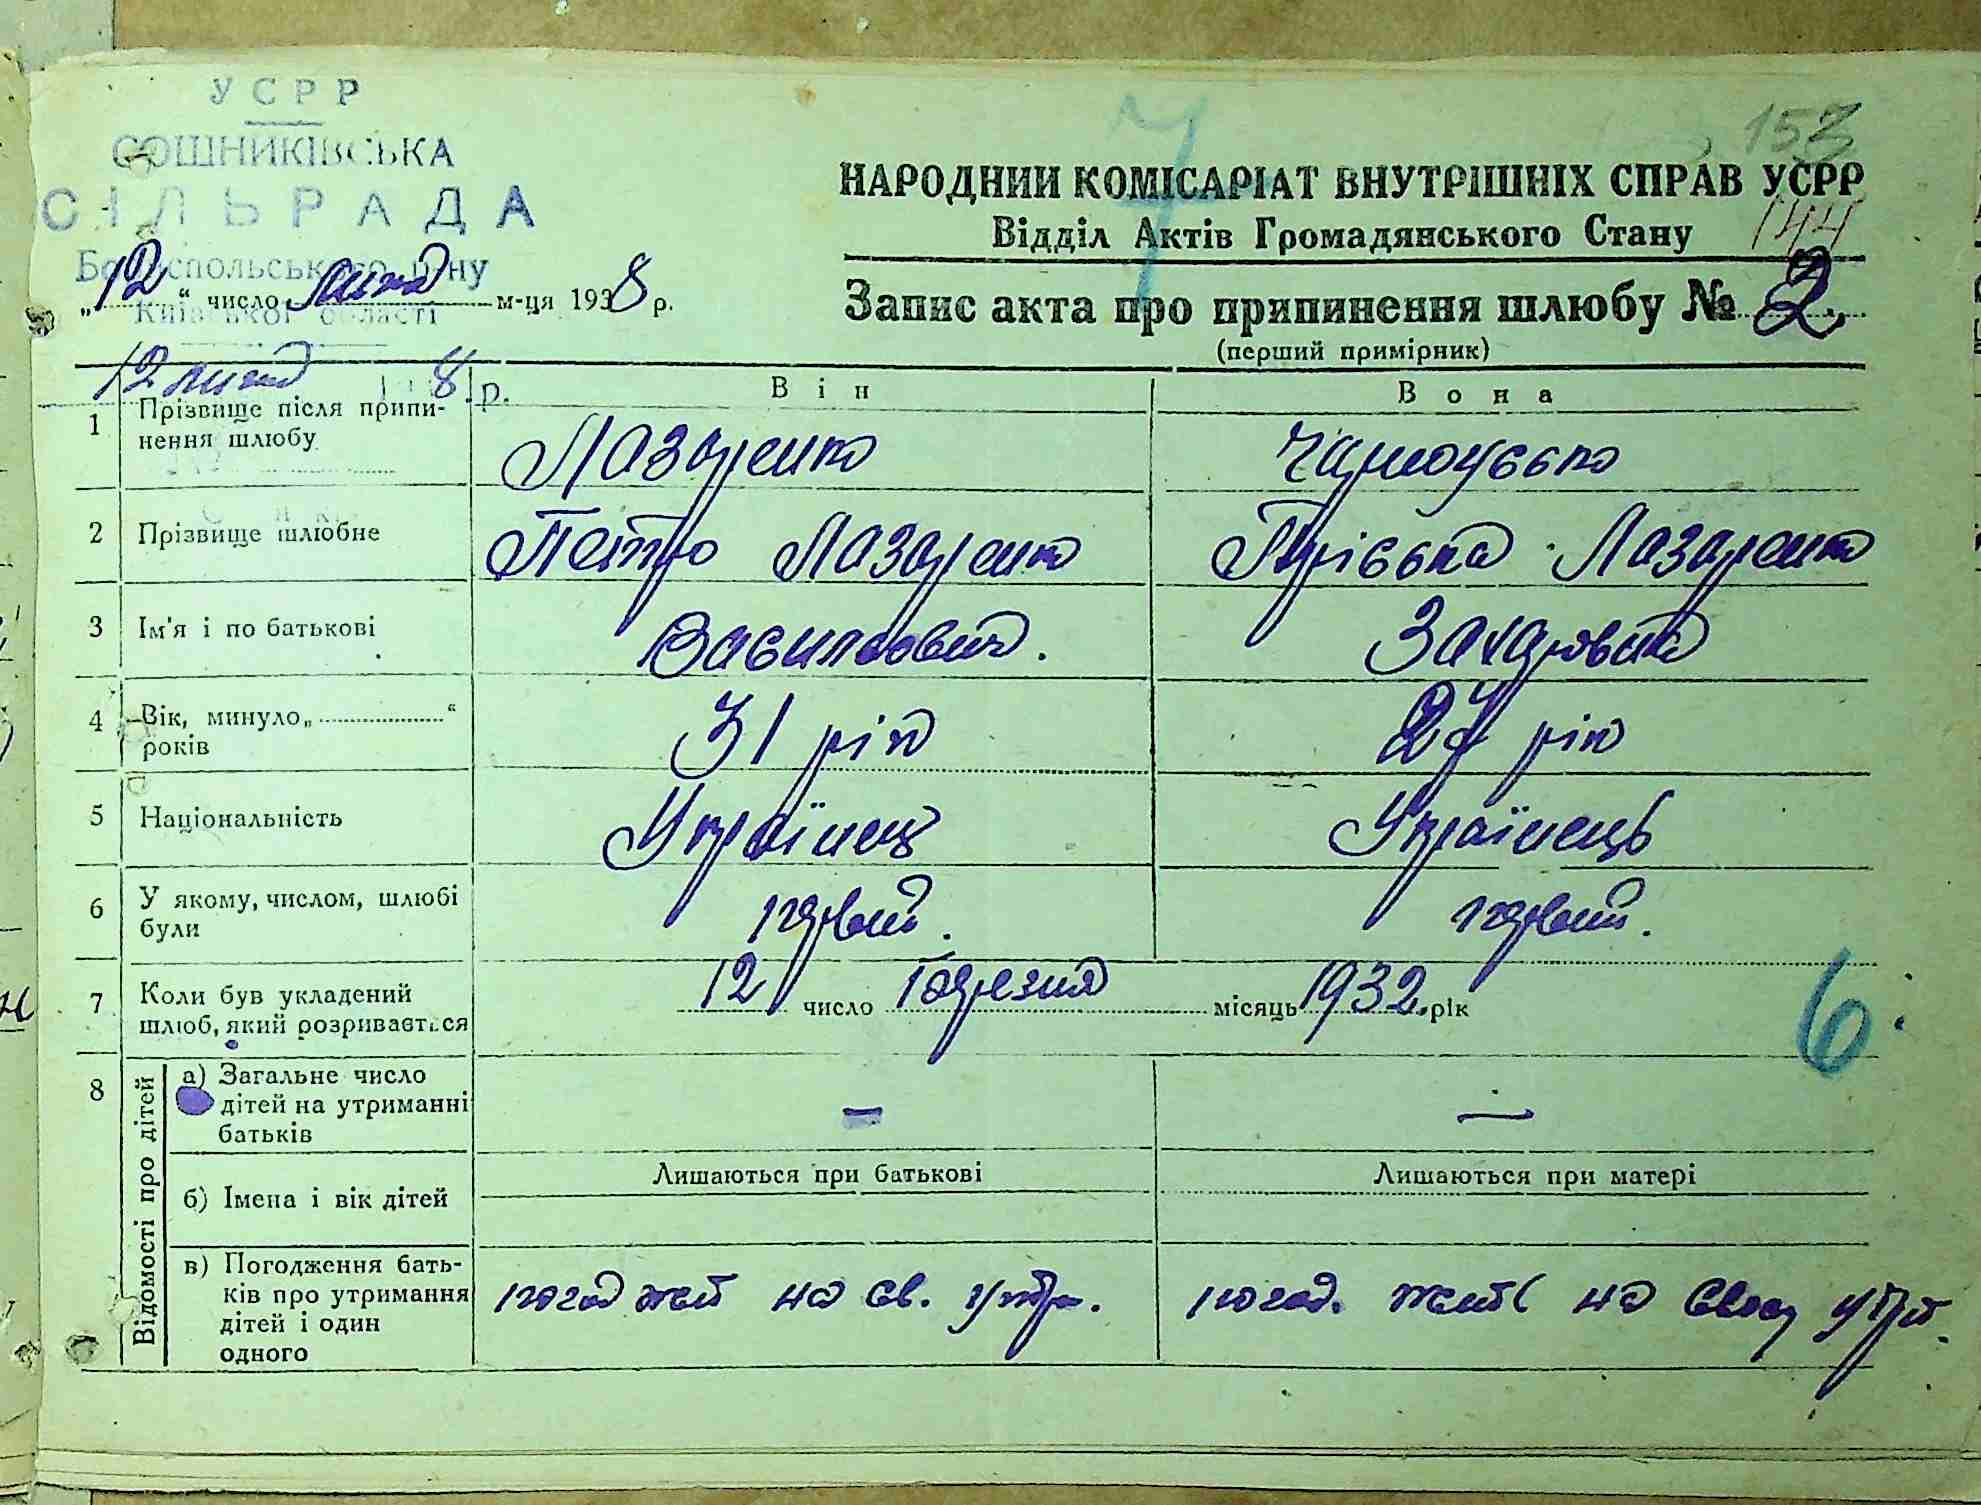 УСРР
СОШНИКІВСЬКА
СІЛЬРАДА
Бориспольського р-ну
Київської області
7
153
НАРОДНИЙ КОМІСАРІАТ ВНУТРІШНІХ СПРАВ УСРР
Відділ Актів Громадянського Стану
144
„12“ число лютого м-ця 1938 р.
Запис акта про припинення шлюбу № 2.
(перший примірник)
12 8 р.
Він Вона
1 Прізвище після припи-
нення шлюбу
Лазаренко
2 Прізвище шлюбне
Петро Лазаренко Пріська Лазаренко
3 Ім'я і по батькові
Васильович. Захаровна
4 Вік, минуло „ “
років
31 рік 27 рік
5 Національність
Українец Українець
6 У якому, числом, шлюбі
були
первий. первий.
7 Коли був укладений
шлюб, який розривається
12 число Березня місяць 1932. рік
6
8 Відомості про дітей
а) Загальне число
дітей на утриманні
батьків
— —
б) Імена і вік дітей
Лишаються при батькові Лишаються при матері
в) Погодження бать-
ків про утримання
дітей і один
одного
на св. утр. погод. жить на своєу утр.